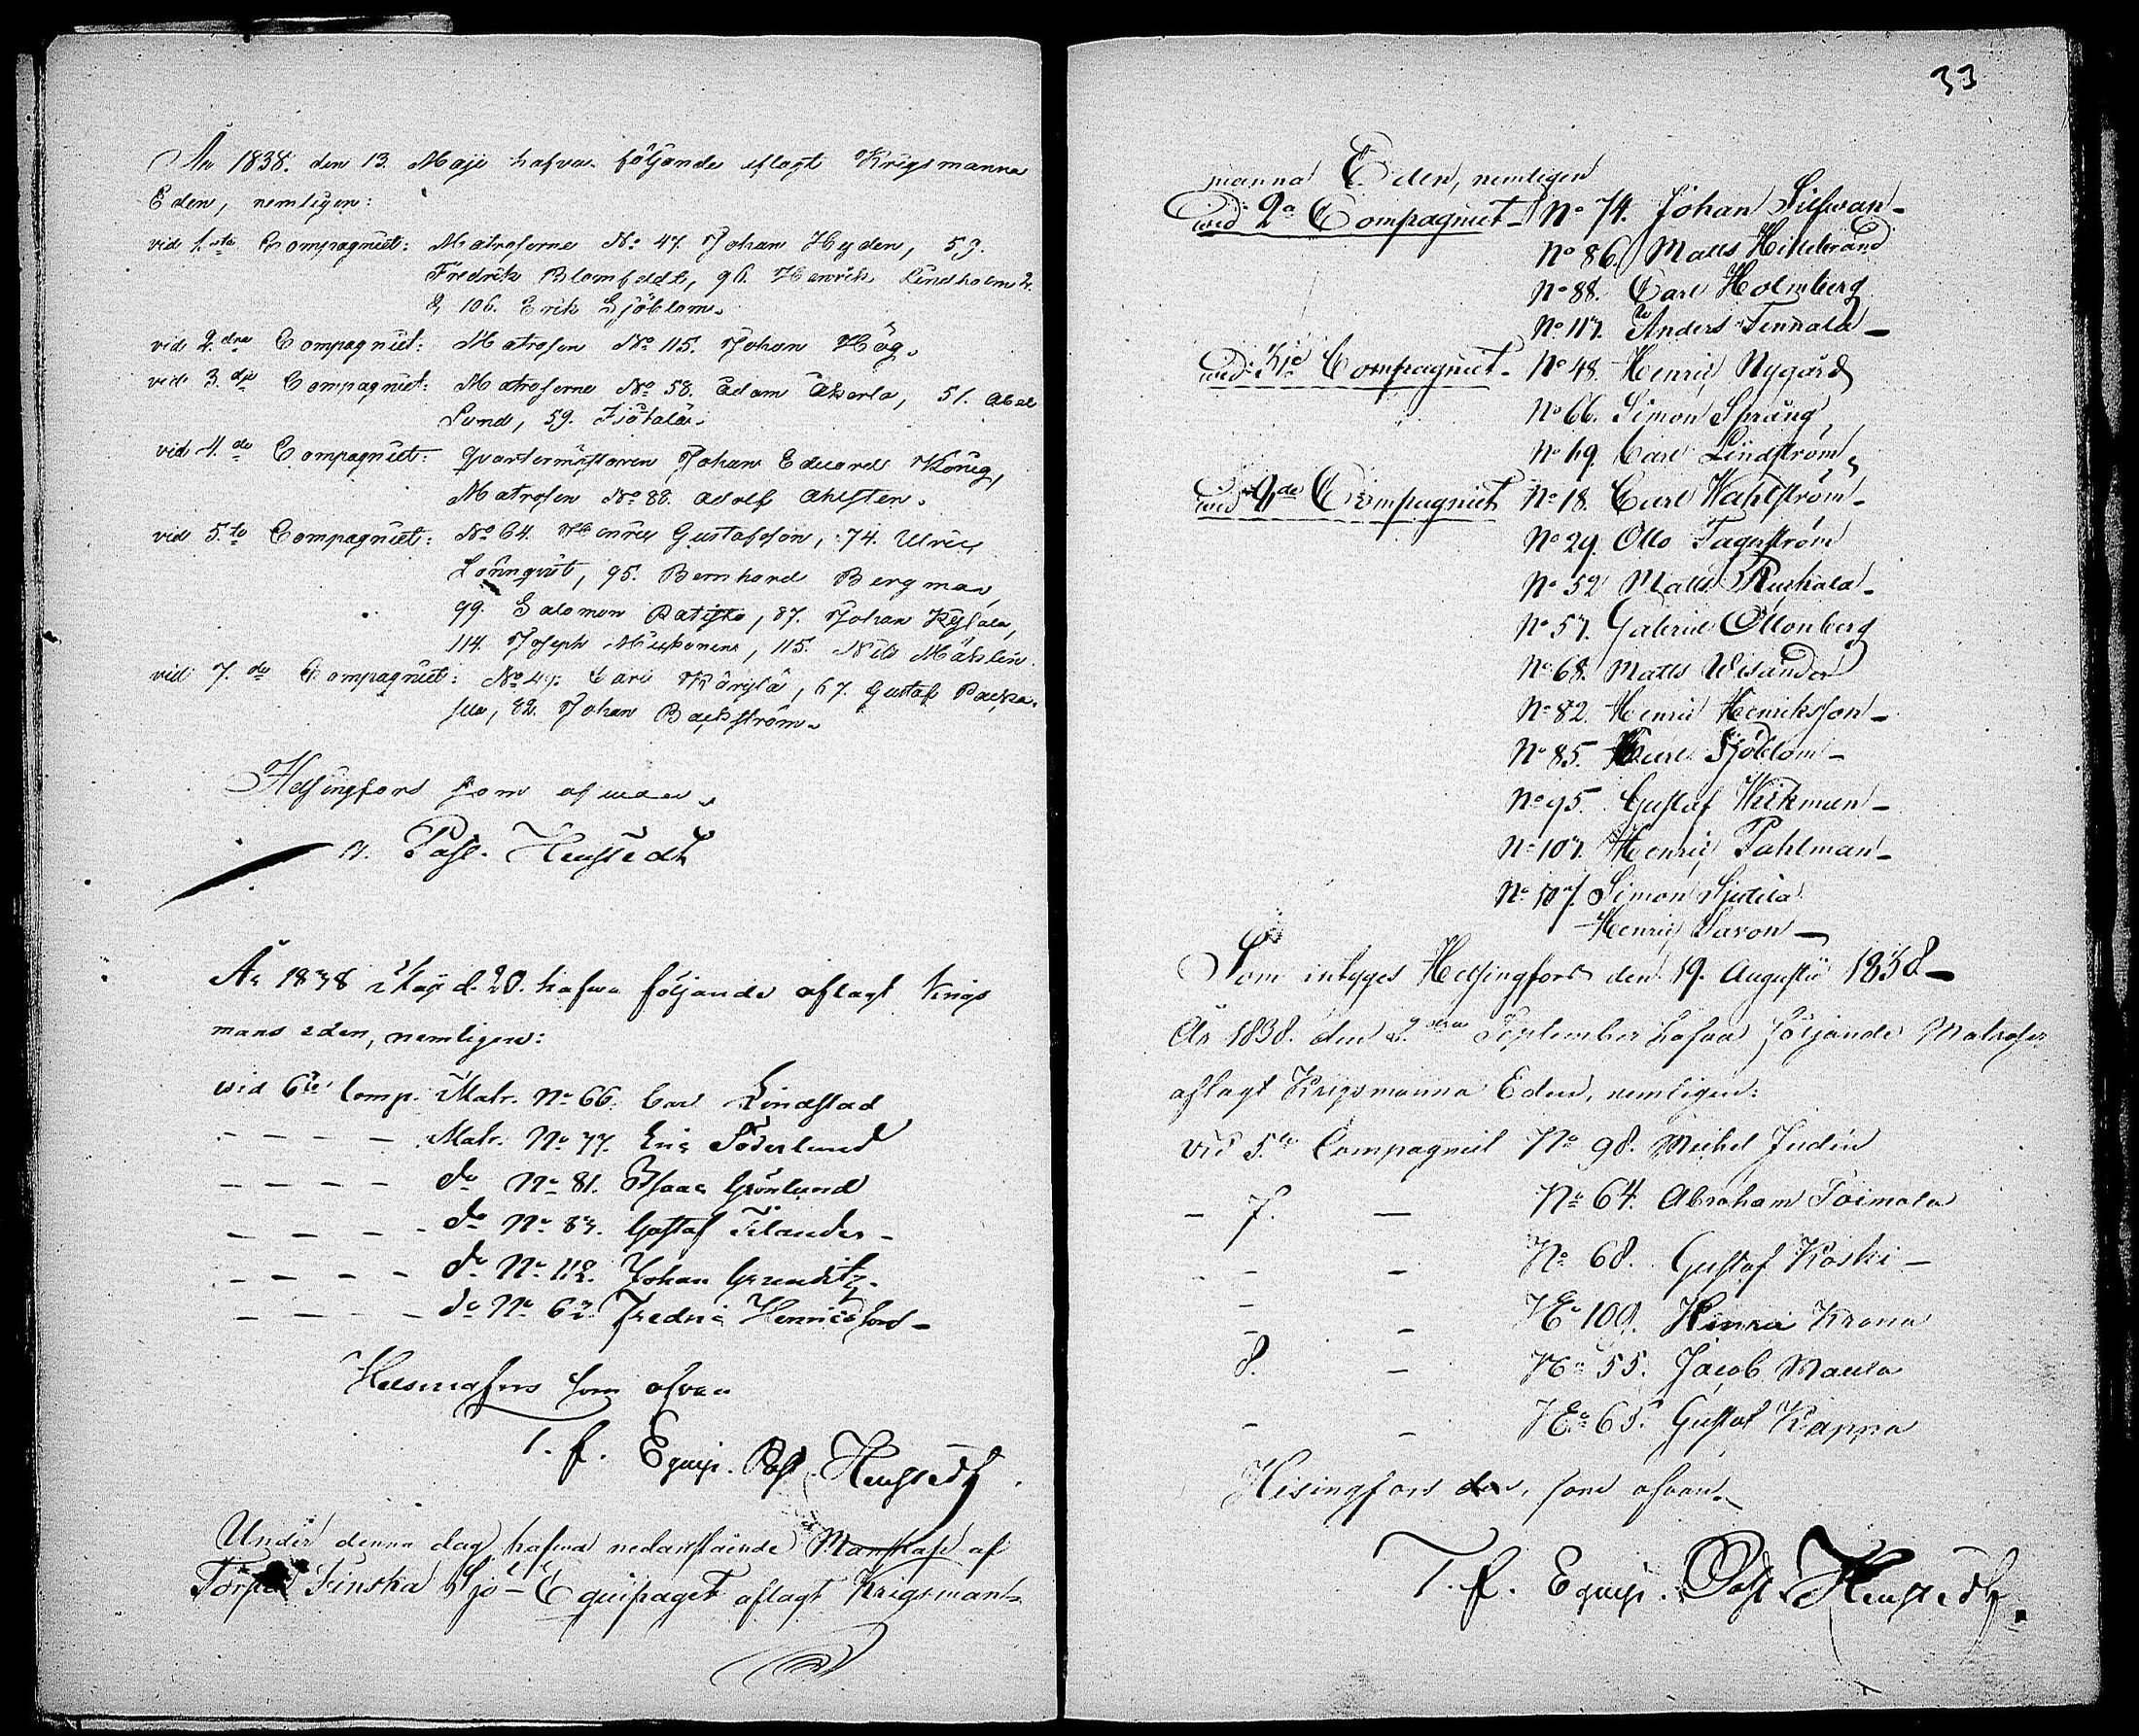 År 1838. den 13. Maji hafva följande aflagt Krigsmanna
Eden, nemligen:
vid 1.sta Compagniet: Matroserne No 47. Johan Heyden, 53.
Fredrik Blomfeldt, 96. Henrik Lindholm
& 106. Erik Sjöblom.
vid 2.dra Compagniet: Matrosen No 115. Johan Hög.
vid 3.dje Compagniet: Matroserne No 58. Adam Åkerla, 51. Abel
Lund, 59.
vid 4.de Compagniet: Quartermästaren Johan Eduard König,
Matrosen No 88. Adolf Ahlsten.
vid 5.te Compagniet: No 64. Henric Gustafsson, 74. Ulric
Lönnqvist, 95. Bernhard Bergman,
99. Salomon 87. Johan Kylälä,
114. Joseph 115. Nils Mählin.
vid 7.de Compagniet: No 47. Carl Käryla, 67. Gustaf
82. Johan Backström.
Helsingfors som ofvan.
Past. Heustedt
År 1838 Maji d. 20. hafva följande aflagt Krigs
mans eden, nemligen:
wid 6te Comp. Matr. No 66. Carl Lindstad
- - - - Matr. No 77. Eric Söderlund
- - - - do No 81. Isaac Grönlund
- - - - do No 83. Gustaf Telander -
- - - - do No 112. Johan Grunditz.
- - - - do No 62 Fredric Henricsson -
Helsingfors som ofvan
T. f. Equip. Past. Heustedt
Under denna dag hafwa nedanstående Manskap af
Finska Sjö-Equipaget aflagt Krigsmans
33
manna Eden, nemligen
wid 2a Compagniet - No 74. Johan Silfwan -
No 86. Matts Hildebrand
No 88. Carl Holmberg
No 117. Anders Tennala -
wid 3je Compagniet - No 48. Henric Nygård
No 66. Simon Spräng,
No 69. Carl Lindström,
wid 4de Compagniet No 18. Carl Wahlström -
No 29. Otto Fagerström
No 52 Matts Ruskala -
No 57. Gabriel Ollonberg
No 68. Matts Wisander
No 82. Henric Henriksson -
No 85. Carl Sjöblom -
No 95. Gustaf Wikman -
No 107. Henric Pahlman -
No 107. Simon
Henric Savon -
Som intygas Helsingfors den 19. Augusti 1838 -
År 1838. den September hafva följande Matroser
aflagt Krigsmanna Eden, nemligen:
vid 5.te Compagniet No 98. Michel Judin
- 7. - No 64. Abraham Toimola
- - No 68. Gustaf Koski -
- - No 109. Henric Krona
8. - No 55. Jacob Maula
- - No 65. Gustaf Kappa
Helsingfors som ofvan.
T. f. Equip. Past. Heustedt.